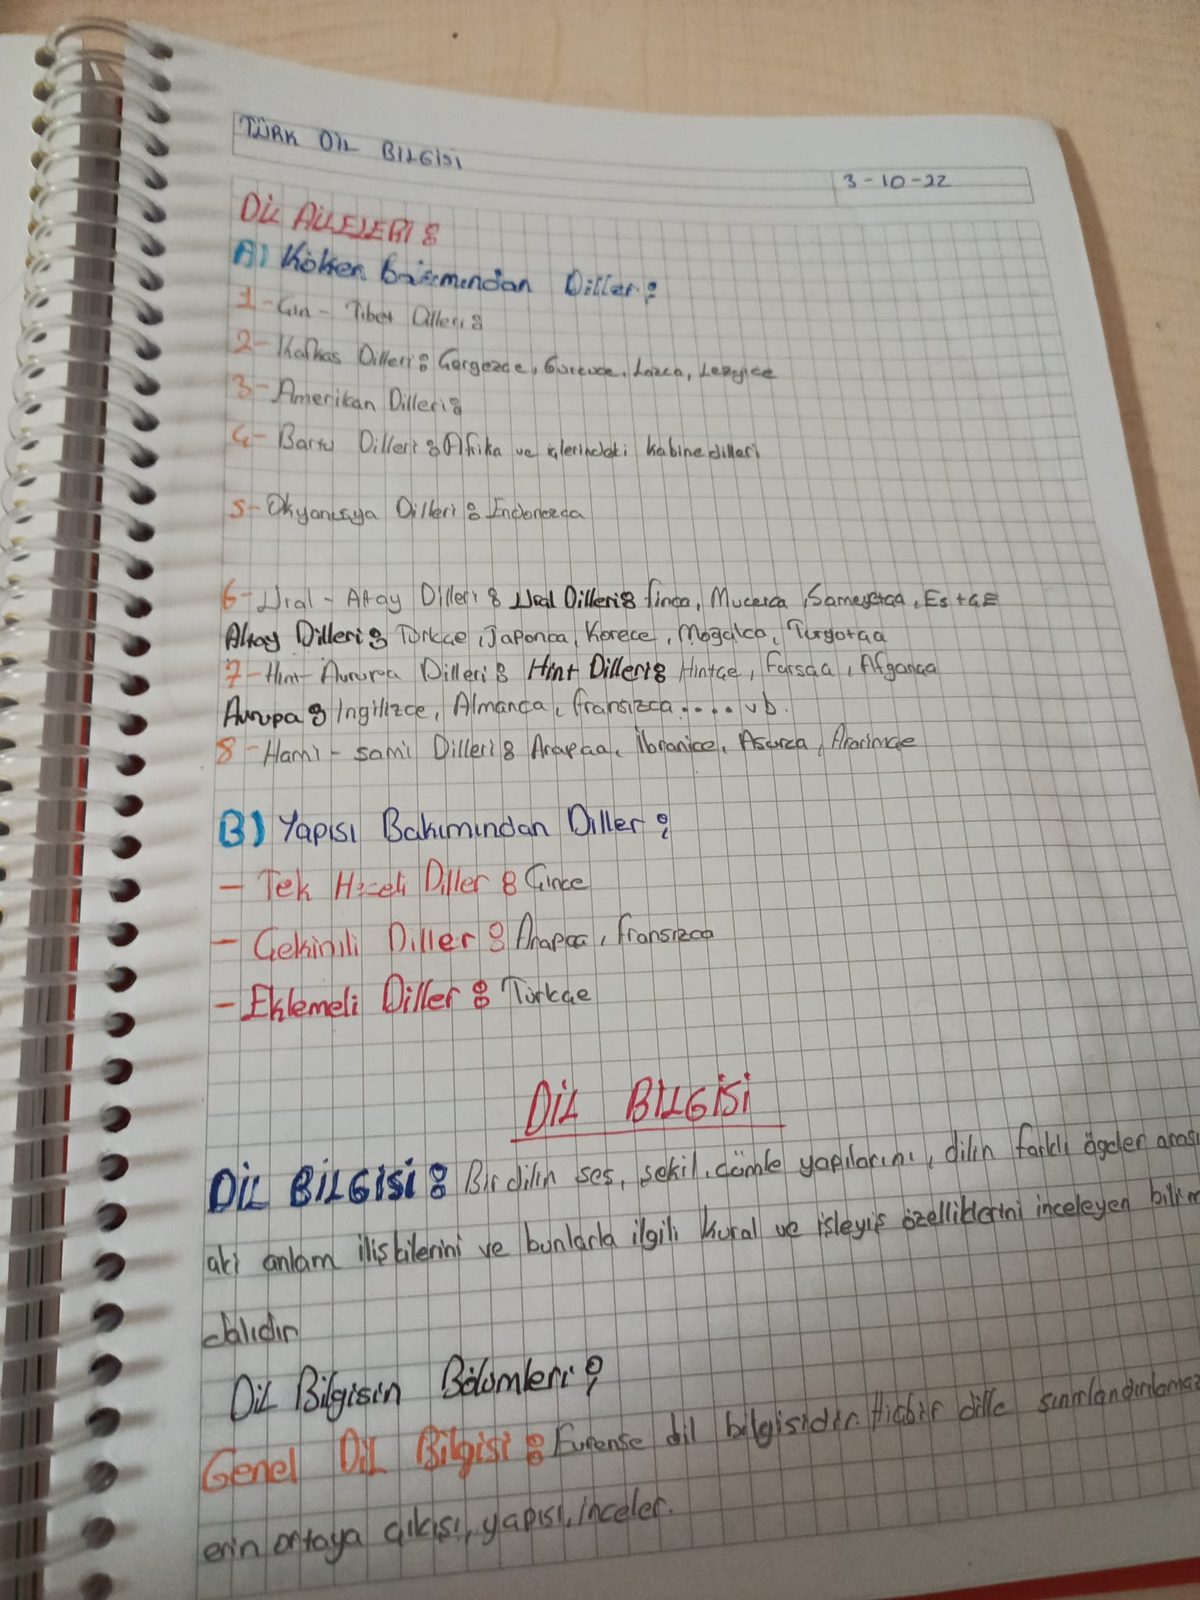 TÜRK DİL BİLGİSİ
3-10-22
DİL AİLELERİ:
A) Köken Bakımından Diller:
1- Çin - Tibet Dilleri:
2- Kafkas Dilleri: Gürcüce, Lazca, Lezgice
3- Amerikan Dilleri:
4- Bantu Dilleri: Afrika ve içlerindeki kabine dilleri
5- Okyanusya Dilleri: Endonezca
6- Ural - Altay Dilleri: Ural Dilleri: fince, Mucarca, Sameyetça, Es
Altay Dilleri: Türkçe, Japonca, Korece, Moğalca,
7- Hint- Avrupa Dilleri: Hint Dilleri: Hintçe, Farsça, Afganca
Avrupa: İngilizce, Almanca, fransızca.... vb.
8- Hami - sami Dilleri: Arapça, İbranice, Asurca, Aramice
B) Yapısı Bakımından Diller:
- Tek Heceli Diller: Çince
- Çekimli Diller: Arapça, fransızca
- Eklemeli Diller: Türkçe
DİL BİLGİSİ
DİL BİLGİSİ: Bir dilin ses, şekil, cümle yapılarını, dilin farklı ögeler arası
aki anlam ilişkilerini ve bunlarla ilgili kural ve işleyiş özelliklerini inceleyen bilim
dalıdır
Dil Bilgisin Bölümleri:
Genel Dil Bilgisi: Evrense dil bilgisidir. Hiçbir dille sınırlandırılamaz
erin ortaya çıkışı, yapısı, inceler.